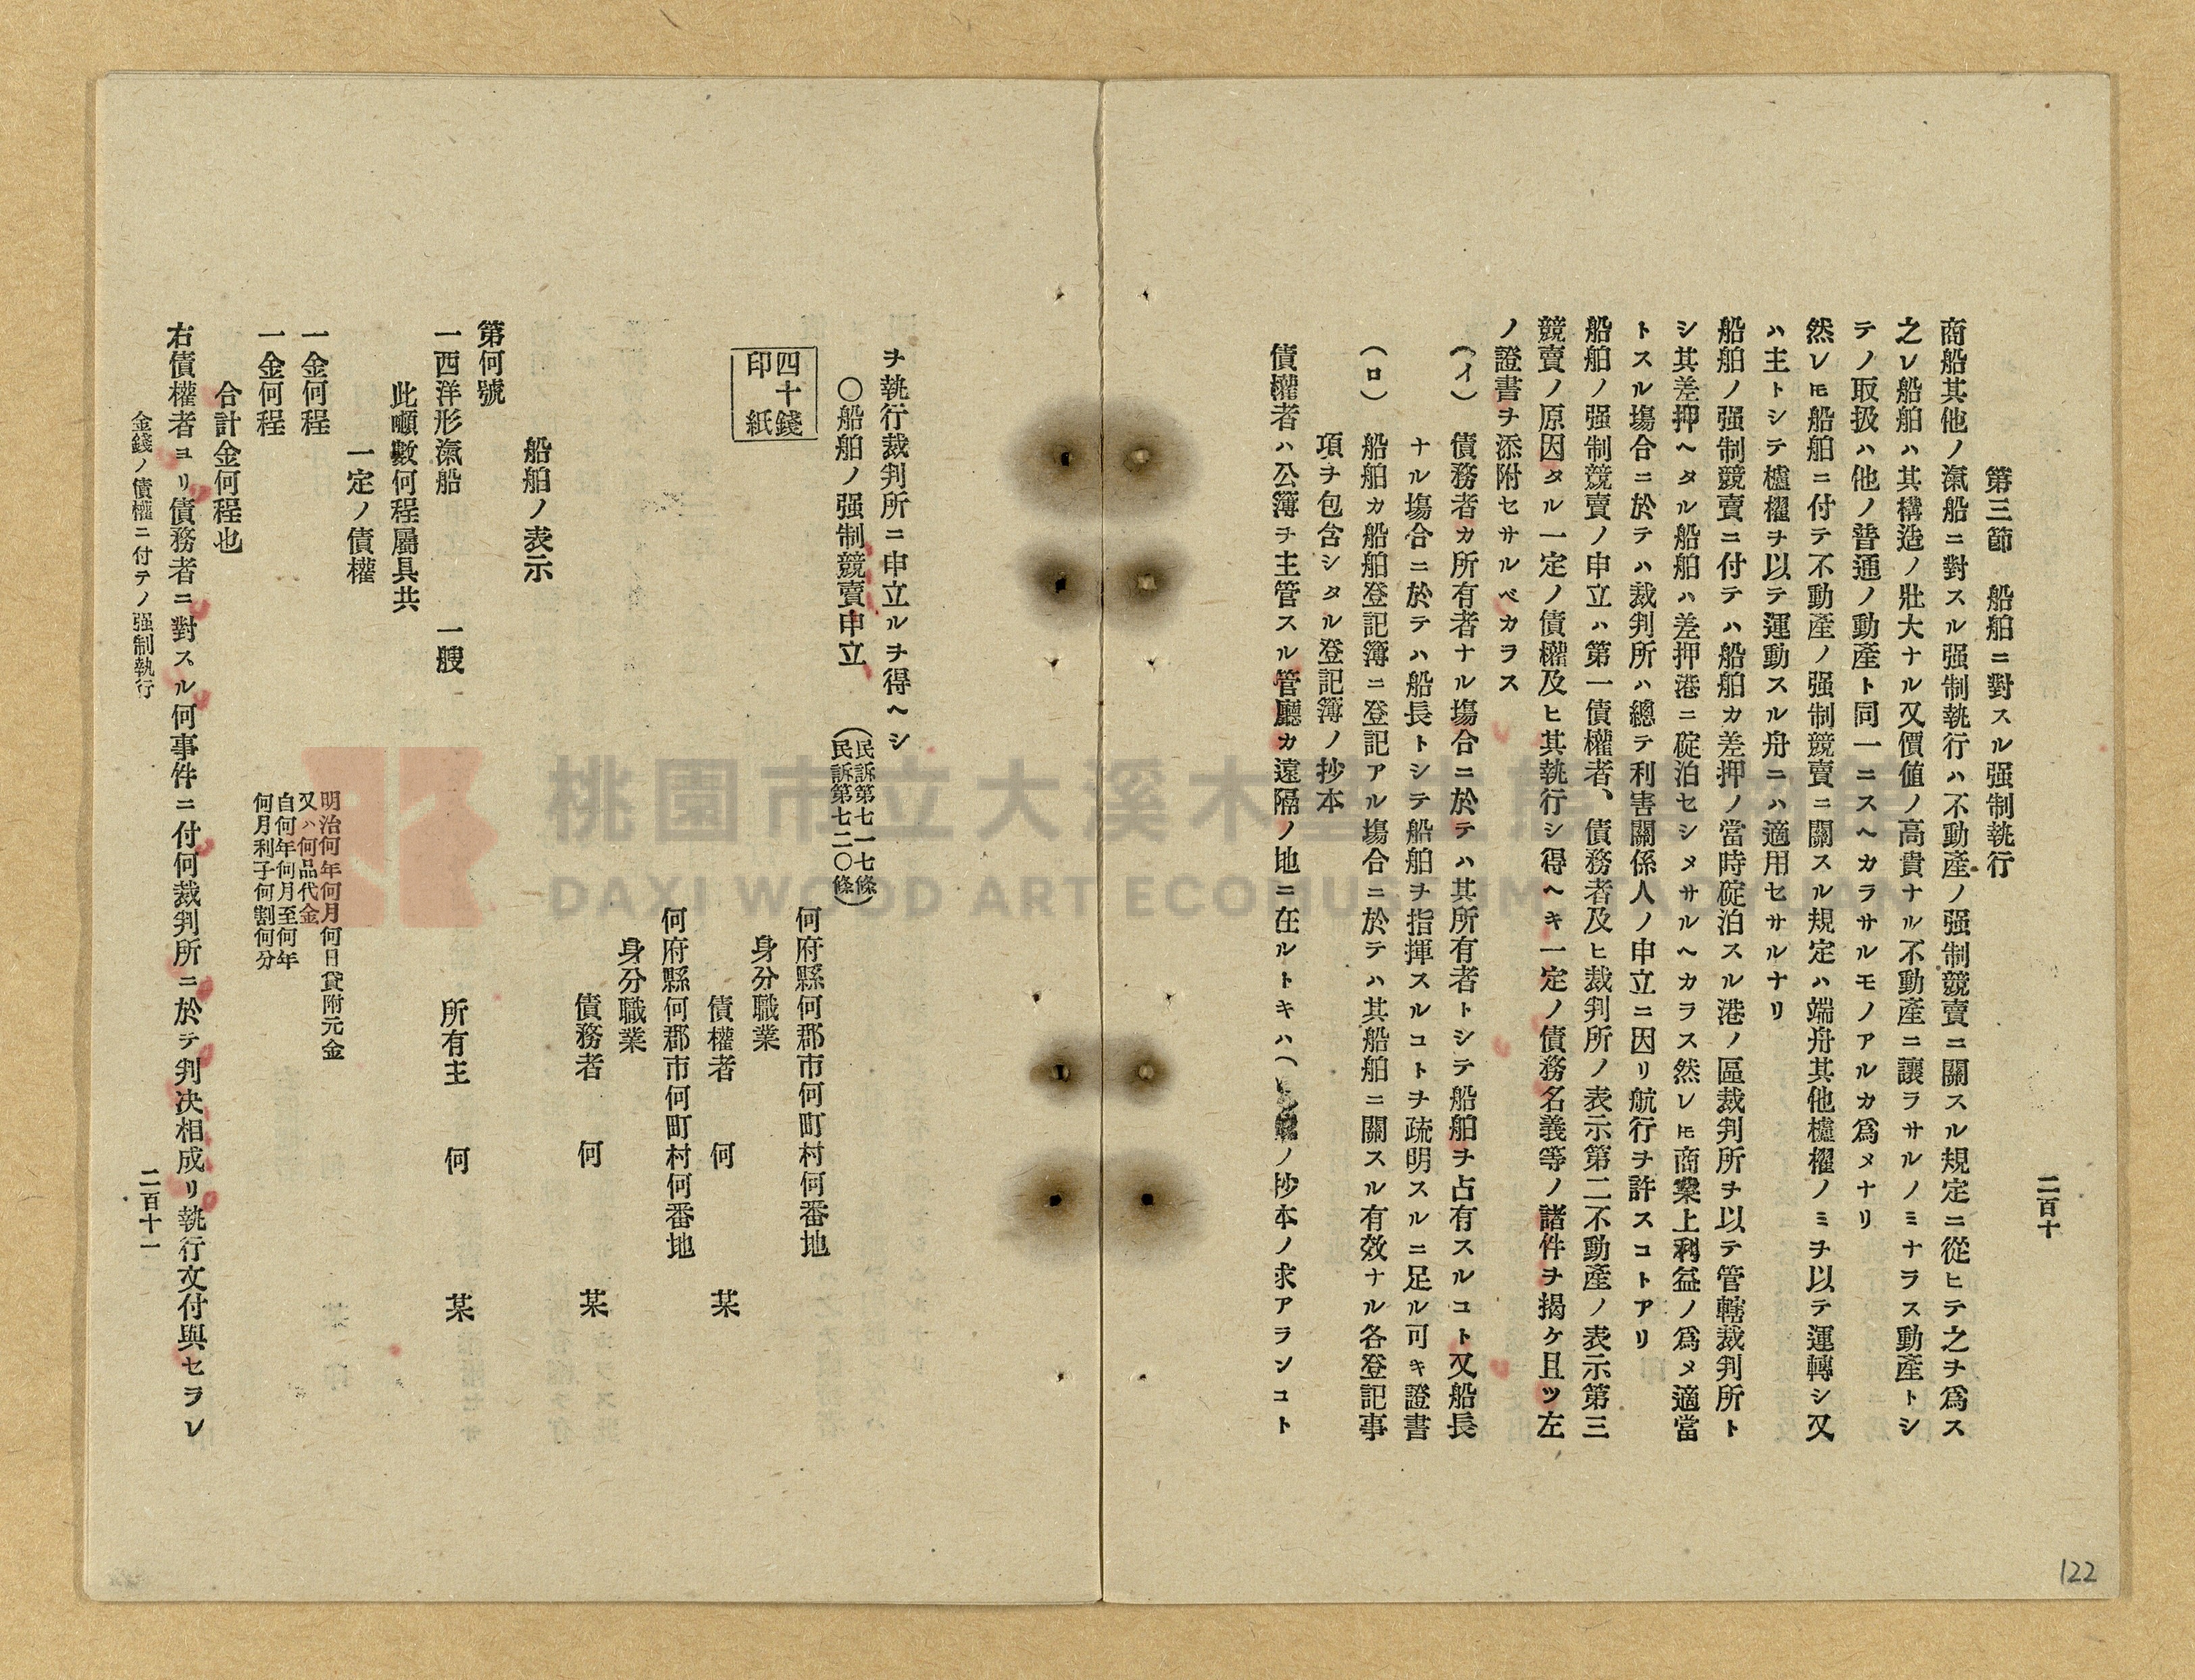 二百十
第三節　船舶ニ對スル强制執行
商船其他ノ滊船ニ對スル强制執行ハ不動產ノ强制競賣ニ關スル規定ニ從ヒテ之ヲ爲ス
之レ船舶ハ其構造ノ壯大ナル又價値ノ高貴ナル不動產ニ讓ラサルノミナラス動產トシ
テノ取扱ハ他ノ普通ノ動產ト同一ニスヘカラサルモノアルカ爲メナリ
然レ𪜈船舶ニ付テ不動產ノ强制競賣ニ關スル規定ハ端舟其他櫨櫂ノミヲ以テ運轉シ又
ハ主トシテ櫨櫂ヲ以テ運動スル舟ニハ適用セサルナリ
船舶ノ强制競賣ニ付テハ船舶カ差押ノ當時碇泊スル港ノ區裁判所ヲ以テ管轄裁判所ト
シ其差押ヘタル船舶ハ差押港ニ碇泊セシメサルヘカラス然レ𪜈商業上利益ノ爲メ適當
トスル塲合ニ於テハ裁判所ハ總テ利害關係人ノ申立ニ因リ航行ヲ許スコトアリ
船舶ノ强制競賣ノ申立ハ第一債權者、債務者及ヒ裁判所ノ表示第二不動產ノ表示第三
競賣ノ原因タル一定ノ債權及ヒ其執行シ得ヘキ一定ノ債務名義等ノ諸件ヲ揭ケ且ツ左
ノ證書ヲ添附セサルベカラス
（イ）　債務者カ所有者ナル塲合ニ於テハ其所有者トシテ船舶ヲ占有スルコト又船長
ナル塲合ニ於テハ船長トシテ船舶ヲ指揮スルコトヲ疏明スルニ足ル可キ證書
（ロ）　船舶カ船舶登記簿ニ登記アル塲合ニ於テハ其船舶ニ關スル有效ナル各登記事
項ヲ包含シタル登記簿ノ抄本
債權者ハ公簿ヲ主管スル管廳カ遠隔ノ地ニ在ルトキハ（ ノ抄本ノ求アランコト
ヲ執行裁判所ニ申立ルヲ得ヘシ
〇船舶ノ强制競賣申立（民訴第七一七條
民訴第七二〇條）
四十錢
印紙
何府縣何郡市何町村何番地
身分職業
債權者　何　某
何府縣何郡市何町村何番地
身分職業
債務者　何　某
船舶ノ表示
第何號
一西洋形滊船　一艘　所有主　何　某
此噸數何程屬具共
一定ノ債權
一金何程　明治何年何月何日貸附元金
又ハ何品代金
一金何程　自何年何月至何年
何月利子何割何分
合計金何程也
右債權者ヨリ債務者ニ對スル何事件ニ付何裁判所ニ於テ判決相成リ執行文付與セヲレ
金錢ノ債權ニ付テノ强制執行
二百十一
122
桃園市立大溪木藝生態博物館
DAXI WOOD ART ECOMUSEUM, TAOYUAN